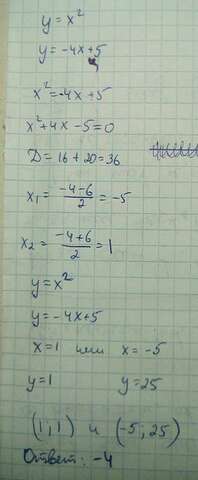 y = x²
y = -4x+5
x² = -4x+5
x²+4x-5=0
D = 16+20=36
x₁ = (-4-6)/2 = -5
x₂ = (-4+6)/2 = 1
y = x²
y = -4x+5
x=1 или x=-5
y=1 y=25
(1,1) и (-5; 25)
Ответ: -4